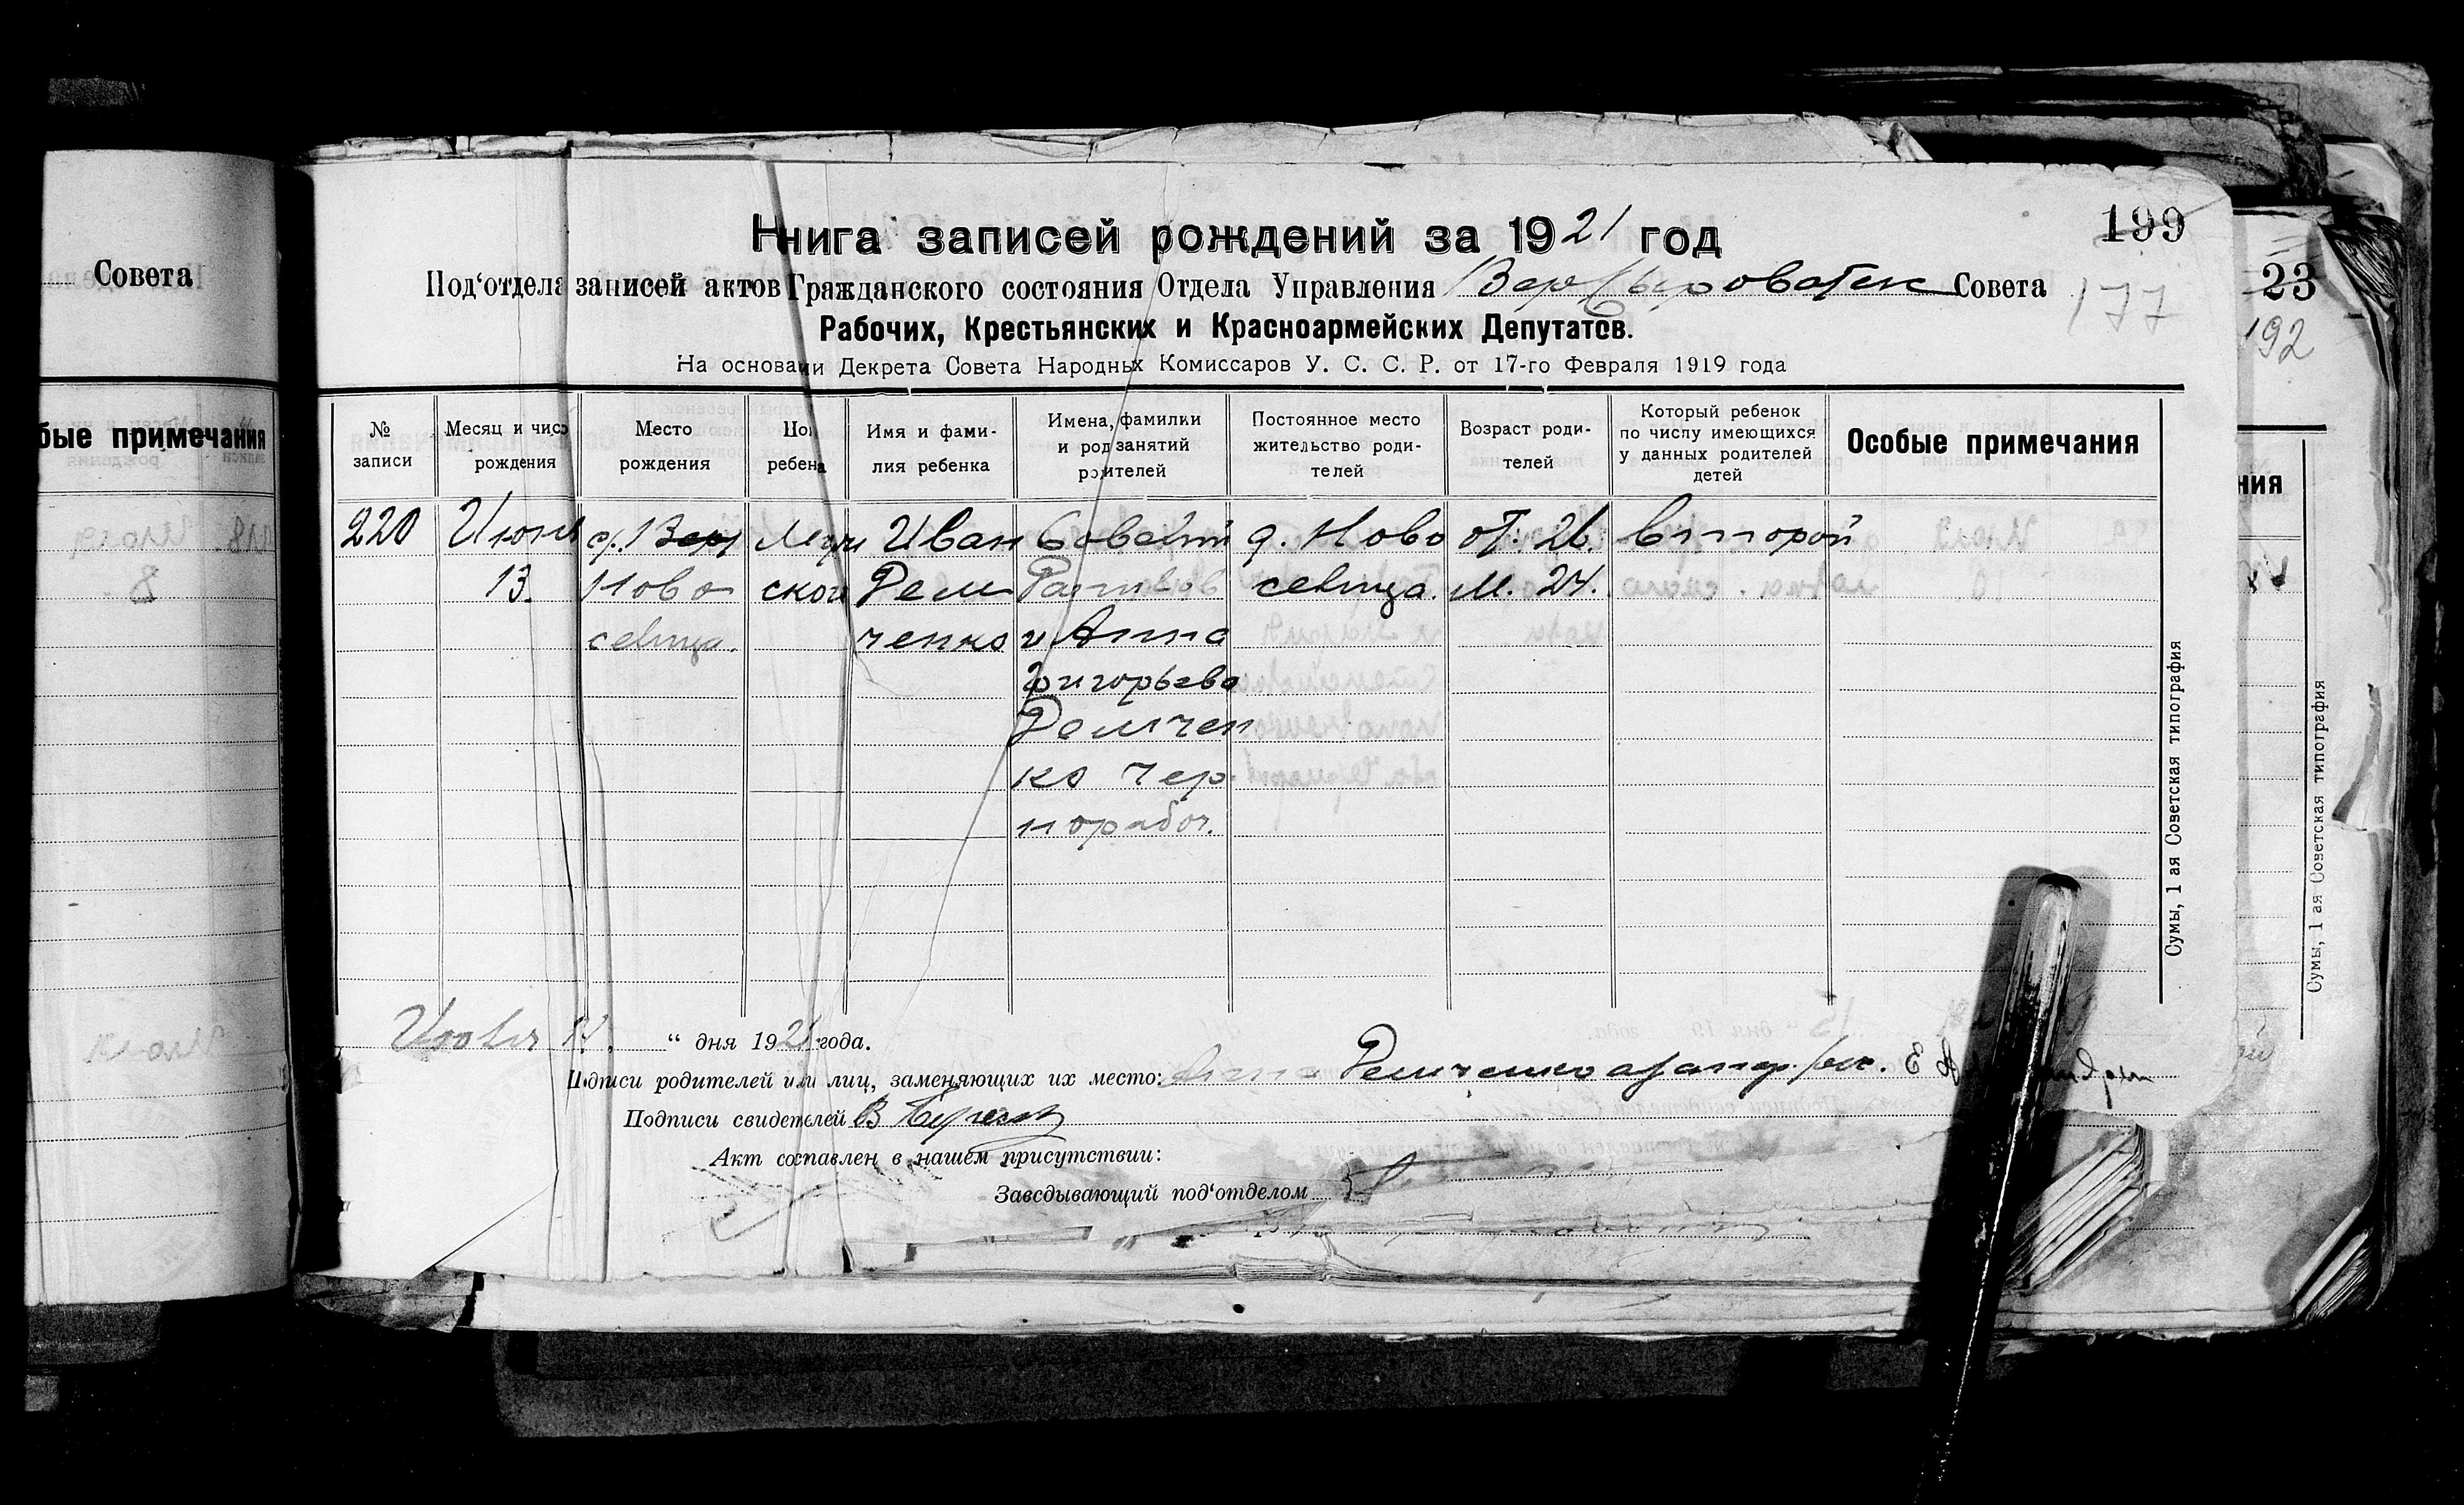 Совета
бые примечания
Книга записей рождений за 1921 год
199
Под‘отдела записей актов Гражданского состояния Отдела Управления Совета
177
Рабочих, Крестьянских и Красноармейских Депутатов.
На основании Декрета Совета Народных Комиссаров У. С. С. Р. от 17-го Февраля 1919 года
23
192
№ записи
Месяц и число рождения
Место рождения
Пол ребенка
Имя и фами-
лия ребенка
Имена, фамилии
и род занятий
родителей
Постоянное место
жительство роди-
телей
Возраст роди-
телей
Который ребенок
по числу имеющихся
у данных родителей
детей
Особые примечания
ния
220
Июня
13.
Ново
севица.
Муж
ской
Иван
Рем
ченко
и Анна
Григорьева
Ремчен
ко чер
норабоч.
д. Ново
севица.
от. 26.
м. 24.
второй
Сумы, 1 ая Советская типография
Сумы, 1 ая Советская типография
“ дня 1921 года.
Подписи родителей или лиц, заменяющих их место: Ремченко
Подписи свидетелей В
Акт составлен в нашем присутствии:
Завсдывающий под‘отделом